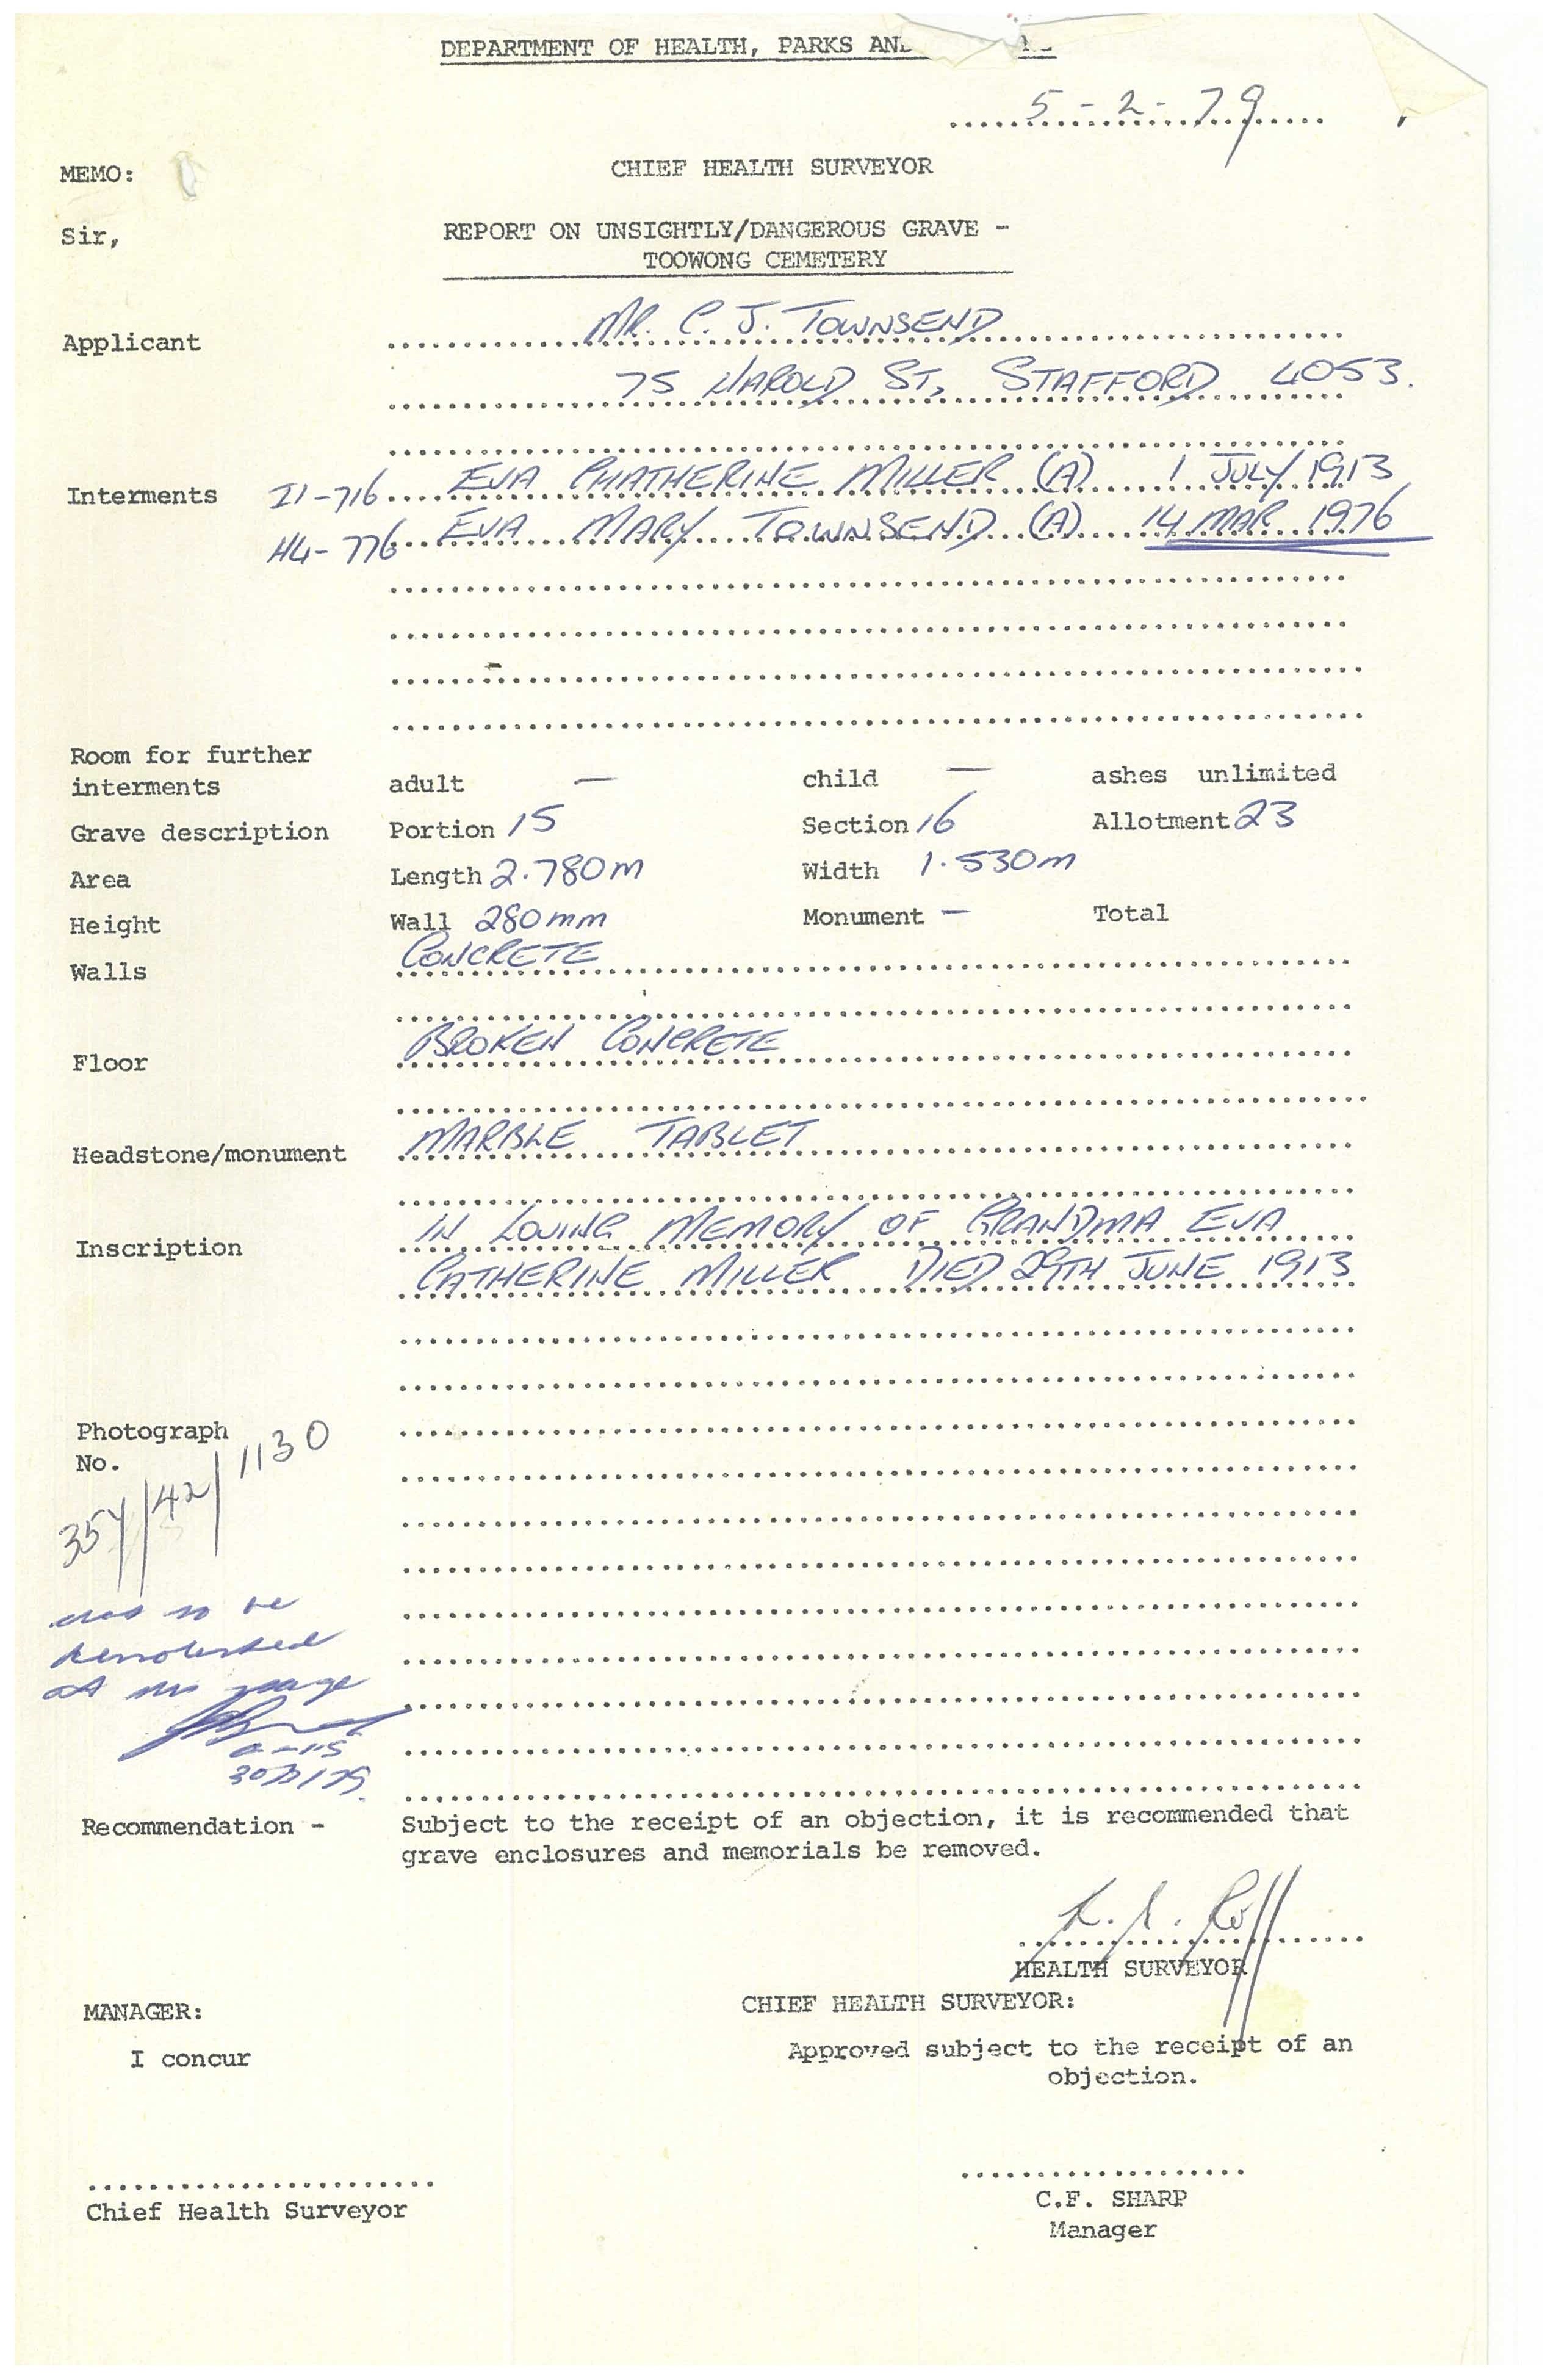 DEPARTMENT OF HEALTH, PARKS AND
5-2-79
MEMO: CHIEF HEALTH SURVEYOR
Sir, REPORT ON UNSIGHTLY/DANGEROUS GRAVE -
TOOWONG CEMETERY
Applicant MR. C. J. TOWNSEND
75 HAROLD ST, STAFFORD 4053.
Interments I1-716 EVA CHATHERINE MILLER (A) 1 JULY 1913
H4-776 EVA MARY TOWNSEND (A) 14 MAR 1976
Room for further
interments adult — child — ashes unlimited
Grave description Portion 15 Section 16 Allotment 23
Area Length 2.780m Width 1.530m
Height Wall 280mm Monument — Total
Walls CONCRETE
Floor BROKEN CONCRETE
Headstone/monument MARBLE TABLET
Inscription IN LOVING MEMORY OF GRANDMA EVA
CATHERINE MILLER DIED 29TH JUNE 1913
Photograph
No. 354/42/1130
to be
demolished
at this stage
Recommendation - Subject to the receipt of an objection, it is recommended that
grave enclosures and memorials be removed.
HEALTH SURVEYOR
MANAGER: CHIEF HEALTH SURVEYOR:
I concur Approved subject to the receipt of an
objection.
Chief Health Surveyor C.F. SHARP
Manager